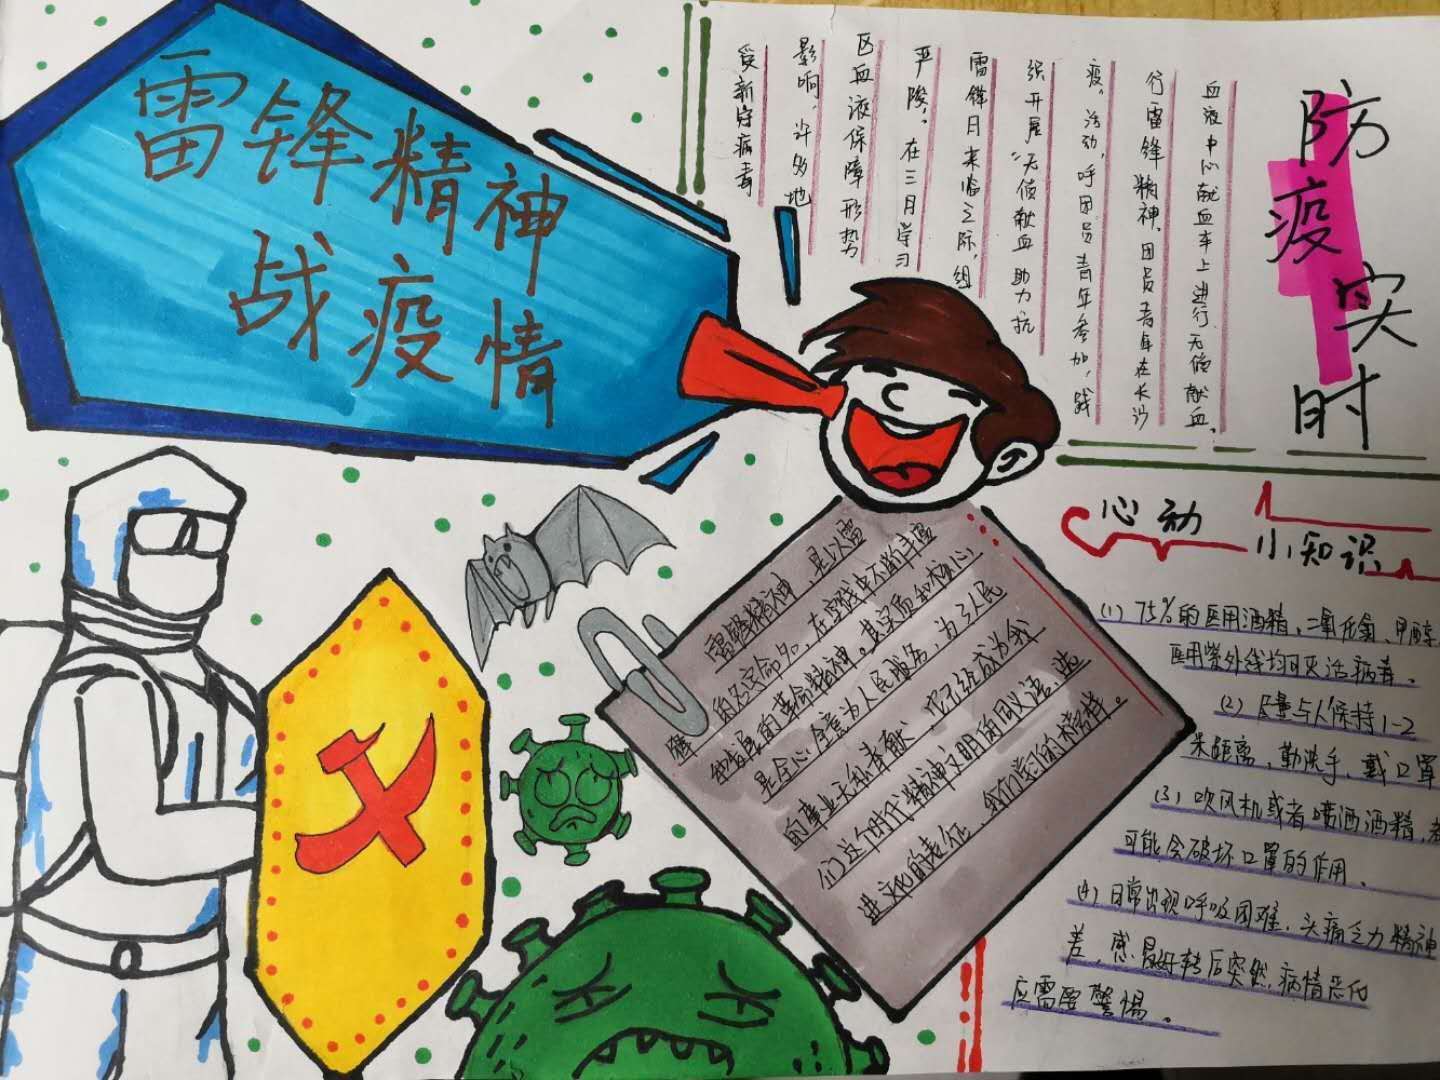 雷锋精神
战疫情
防疫实时
受新冠病毒
影响，许多地
区血液保障形势
严峻。在三月学习
雷锋日来临之际，组
织开展“无偿献血 助力抗
疫”活动，呼团员青年参加，践
行雷锋精神。团员青年在长沙
血液中心献血车上进行无偿献血。
雷锋精神，是以雷
锋的名字命名，在实践中不断丰富
和发展的革命精神。其实质和核心
是全心全意为人民服务，为了人民
的事业无私奉献，它已经成为我
们这个时代精神文明的同义语、先
进文化的表征，我们学习的榜样。
心动
小知识
(1) 75%的医用酒精、二氧化氯、甲醛
医用紫外线均可灭活病毒。
(2) 尽量与人保持1-2
米距离，勤洗手，戴口罩
(3) 吹风机或者喷洒酒精，都
可能会破坏口罩的作用。
(4) 日常出现呼吸困难，头痛乏力精神
差，感冒好转后突然病情恶化
应需要警惕。